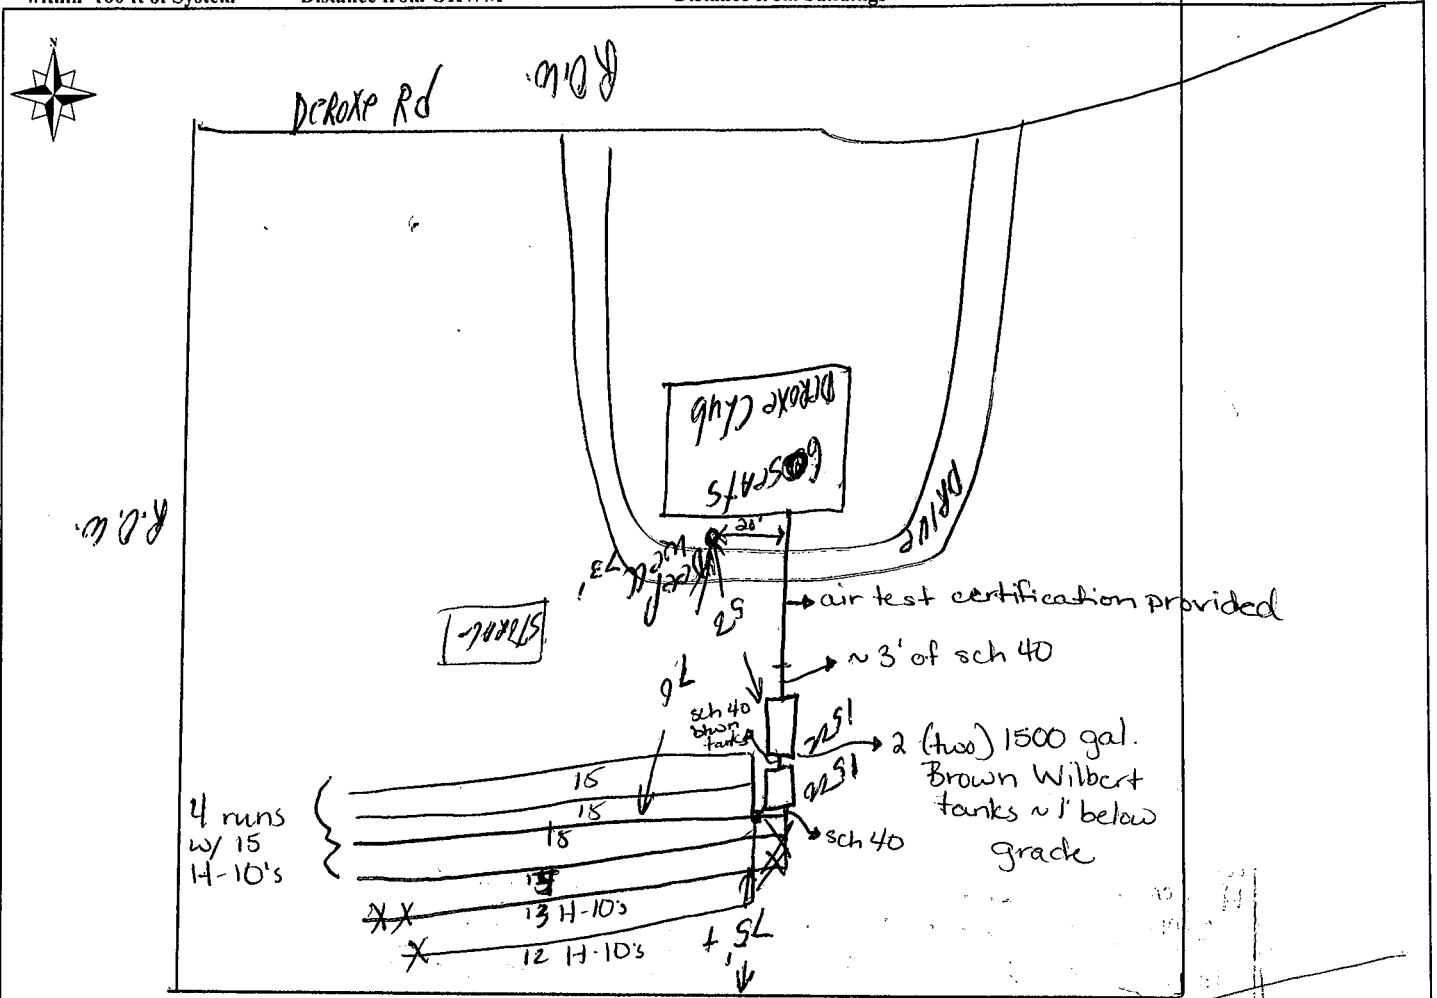 N
DeRoxe Rd
R.O.W.
DeRoxe Club
60 SEATS
20'
DRIVE
R.O.W.
Deep Well 73'
52
STORAGE
→ air test certification provided
→ ~ 3' of sch 40
76
sch 40
btwn
tanks
→ 2 (two) 1500 gal.
Brown Wilbert
tanks ~ 1' below
grade
sch 40
4 runs
w/ 15
H-10's
15
15
15
13 H-10's
12 H-10's
75' +